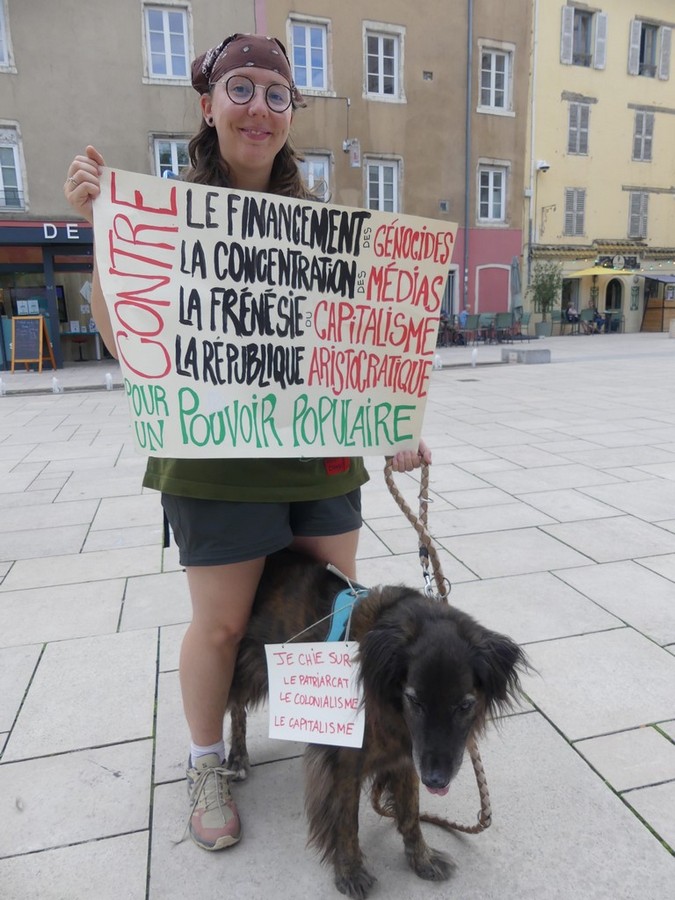 DE
CONTRE
LE FINANCEMENT DES GÉNOCIDES
LA CONCENTRATION DES MÉDIAS
LA FRÉNÉSIE DU CAPITALISME
LA RÉPUBLIQUE ARISTOCRATIQUE
POUR UN POUVOIR POPULAIRE
JE CHIE SUR
LE PATRIARCAT
LE COLONIALISME
LE CAPITALISME